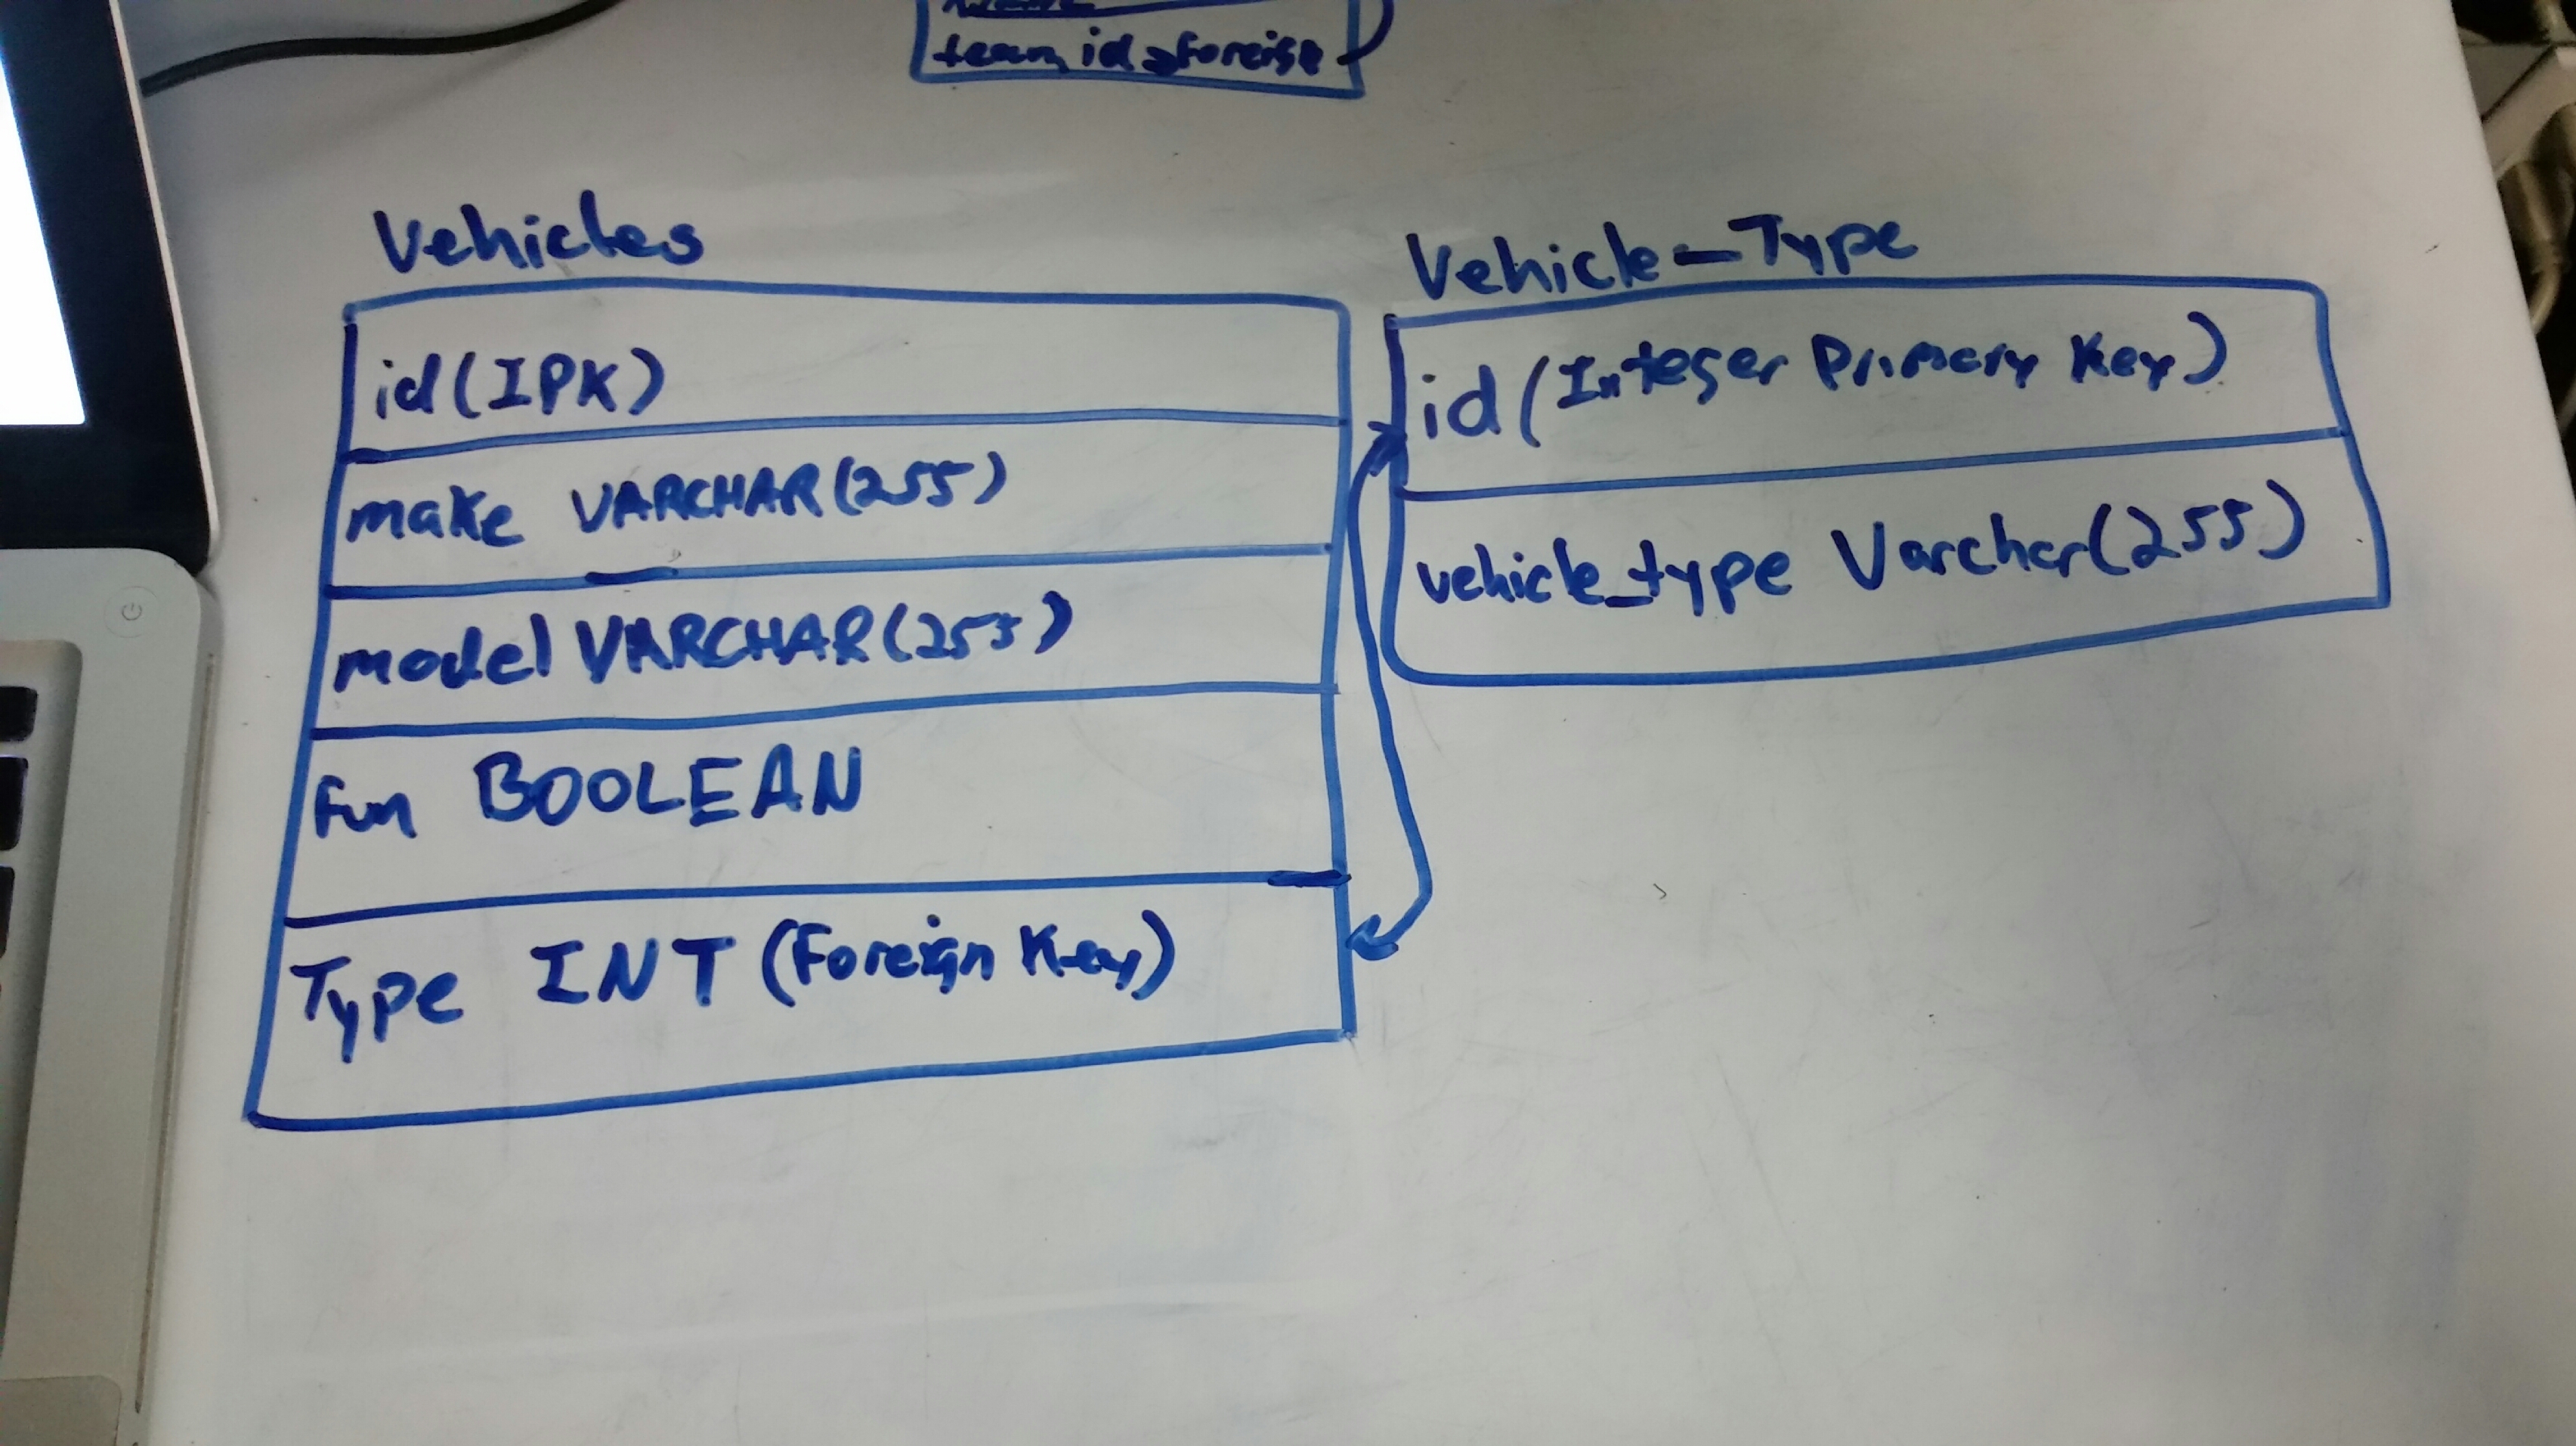 team_id → foreign
Vehicles
id (IPK)
make VARCHAR(255)
model VARCHAR(255)
fun BOOLEAN
Type INT (Foreign Key)
Vehicle_Type
id (Integer Primary Key)
vehicle_type Varchar(255)